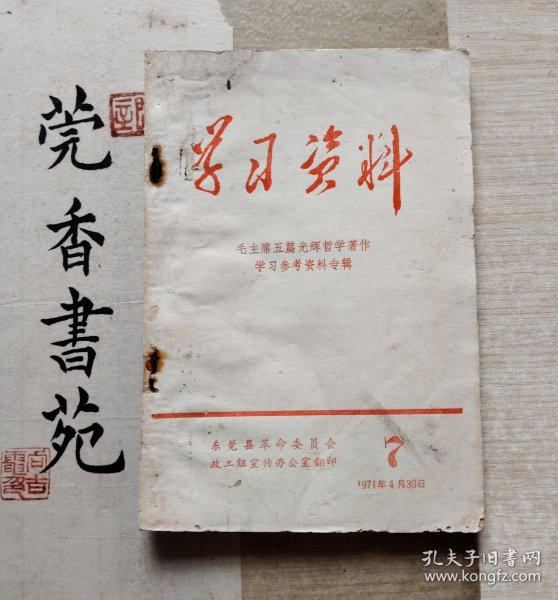 莞香書苑
学习资料
毛主席五篇光辉哲学著作
学习参考资料专辑
东莞县革命委员会
政工组宣传办公室翻印
7
1971年4月30日
孔夫子旧书网
www.kongfz.com